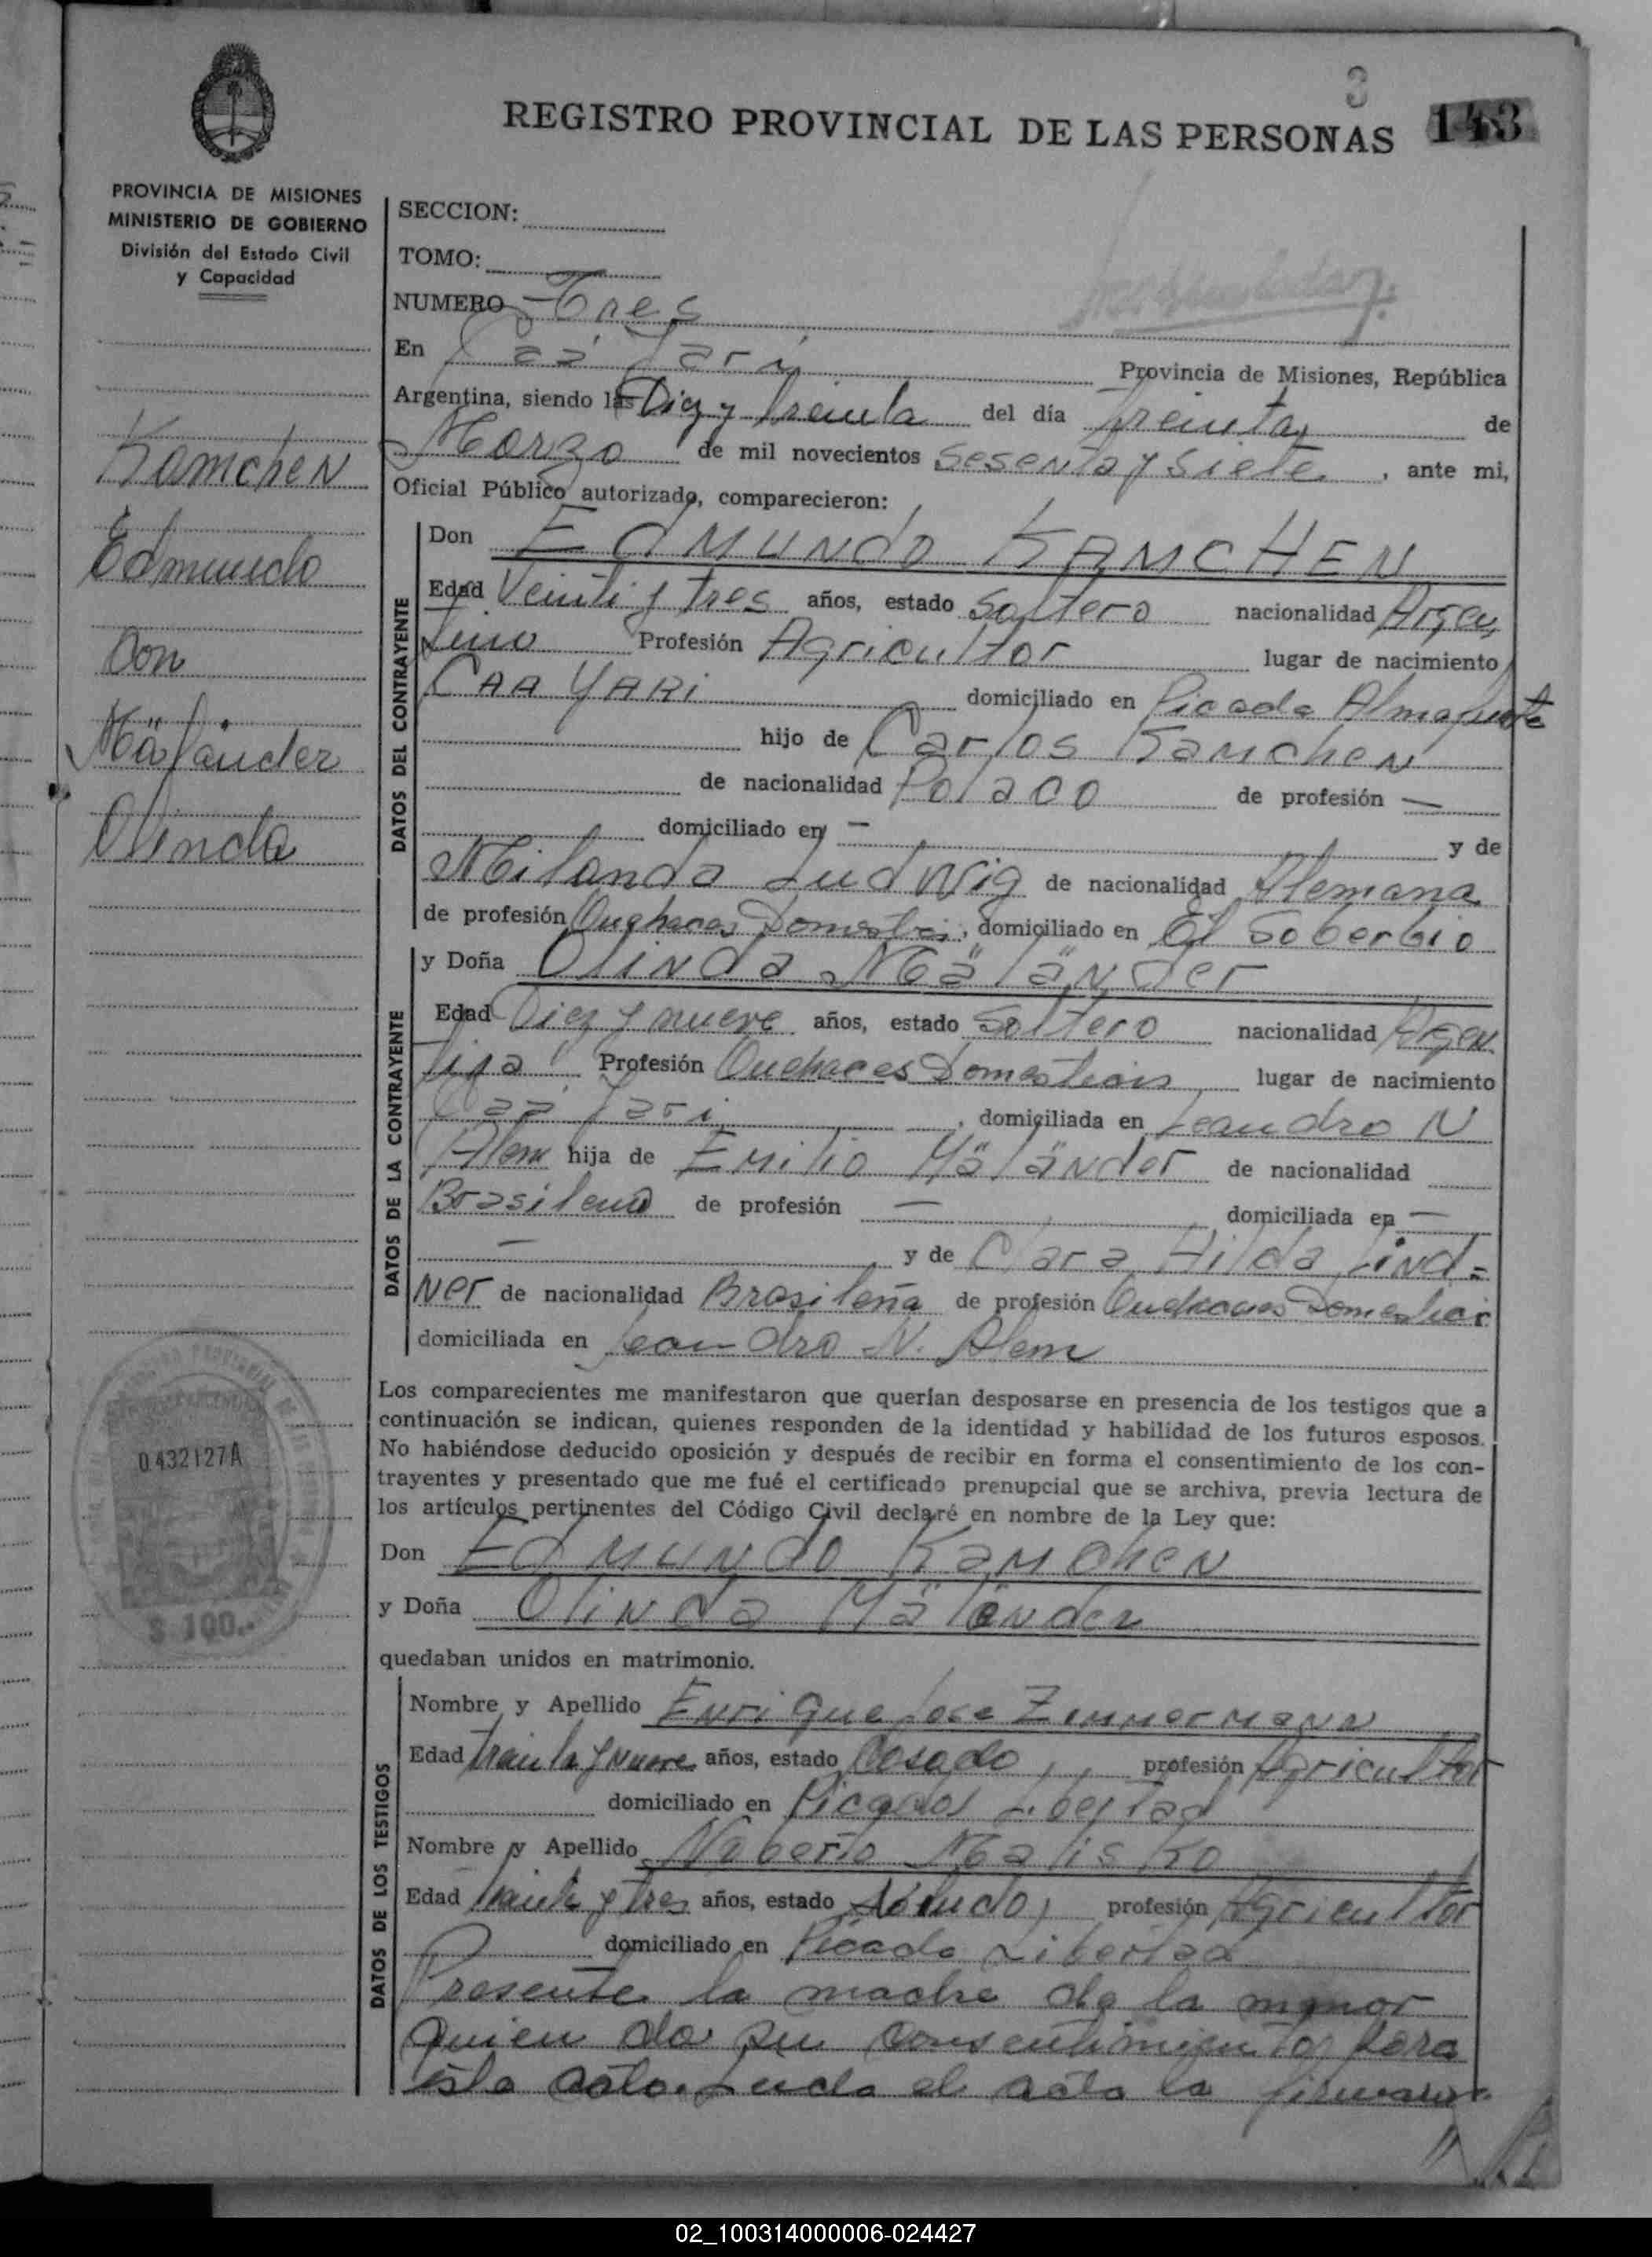 3
REGISTRO PROVINCIAL DE LAS PERSONAS 143
PROVINCIA DE MISIONES
MINISTERIO DE GOBIERNO
División del Estado Civil
y Capacidad
Kamchen
Edmundo
Con
Mäländer
Olinda
0432127A
$ 100.-
SECCION:
TOMO:
NUMERO Tres
En Caá Yarí Provincia de Misiones, República
Argentina, siendo las Diez y treinta del día treinta de
Marzo de mil novecientos Sesenta y Siete, ante mi,
Oficial Público autorizado, comparecieron:
DATOS DEL CONTRAYENTE
Don EdMUNdo KAMCHEN
Edad Veinti y tres años, estado Soltero nacionalidad Argen
tino Profesión Agricultor lugar de nacimiento
CAA YARI domiciliado en Picada Almafuerte
hijo de Carlos Kamchen
de nacionalidad Polaco de profesión —
domiciliado en — y de
Milanda Ludwig de nacionalidad Alemana
de profesión Quehaces Domestics, domiciliado en El Soberbio
DATOS DE LA CONTRAYENTE
y Doña Olinda Mäländer
Edad Diez y nueve años, estado Soltero nacionalidad Argen
tina Profesión Quehaces Domesticos lugar de nacimiento
Caá Yari, domiciliada en Leandro N
Alem hija de Emilio Mäländer de nacionalidad
Brasileno de profesión — domiciliada en —
— y de Clara Hilda Lind=
ner de nacionalidad Brasileña de profesión Quehaces Domestics
domiciliada en Leandro N. Alem
Los comparecientes me manifestaron que querían desposarse en presencia de los testigos que a
continuación se indican, quienes responden de la identidad y habilidad de los futuros esposos.
No habiéndose deducido oposición y después de recibir en forma el consentimiento de los con-
trayentes y presentado que me fué el certificado prenupcial que se archiva, previa lectura de
los artículos pertinentes del Código Civil declaré en nombre de la Ley que:
Don EdMUNdo Kamchen
y Doña Olinda Mäländer
quedaban unidos en matrimonio.
DATOS DE LOS TESTIGOS
Nombre y Apellido Enrique Jose Zimmermann
Edad treinta y nueve años, estado Casado, profesión Agricultor
domiciliado en Picada Libertad
Nombre y Apellido Noberto Malisko
Edad treinta y tres años, estado profesión Agricultor
domiciliado en Picada Libertad
Presente la madre de la menor
quien da su consentimiento para
este acto. Leida el acta la firmaron
02_100314000006-024427